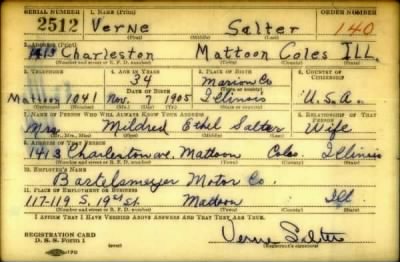 SERIAL NUMBER 1. NAME (Print) ORDER NUMBER
2512 Verne Salter 140
(First) (Middle) (Last)
2. ADDRESS (Print)
1413 Charleston Mattoon Coles ILL.
(Number and street or R. F. D. number) (Town) (County) (State)
3. TELEPHONE 4. AGE IN YEARS 5. PLACE OF BIRTH 6. COUNTRY OF CITIZENSHIP
34 Marion Co
DATE OF BIRTH (Town or county)
Mattoon 1041 Nov. 7 1905 Illinois U.S.A.
(Exchange) (Number) (Mo.) (Day) (Yr.) (State or country)
7. NAME OF PERSON WHO WILL ALWAYS KNOW YOUR ADDRESS 8. RELATIONSHIP OF THAT PERSON
Mrs. Mildred Ethel Salter Wife
(Mr., Mrs., Miss) (First) (Middle) (Last)
9. ADDRESS OF THAT PERSON
1413 Charleston ave. Mattoon Coles Illinois
(Number and street or R. F. D. number) (Town) (County) (State)
10. EMPLOYER'S NAME
Bartelsmeyer Motor Co.
11. PLACE OF EMPLOYMENT OR BUSINESS
117-119 S. 19th St. Mattoon Ill
(Number and street or R. F. D. number) (Town) (County) (State)
I AFFIRM THAT I HAVE VERIFIED ABOVE ANSWERS AND THAT THEY ARE TRUE.
REGISTRATION CARD
D. S. S. Form 1 Verne Salter
(Registrant's signature)